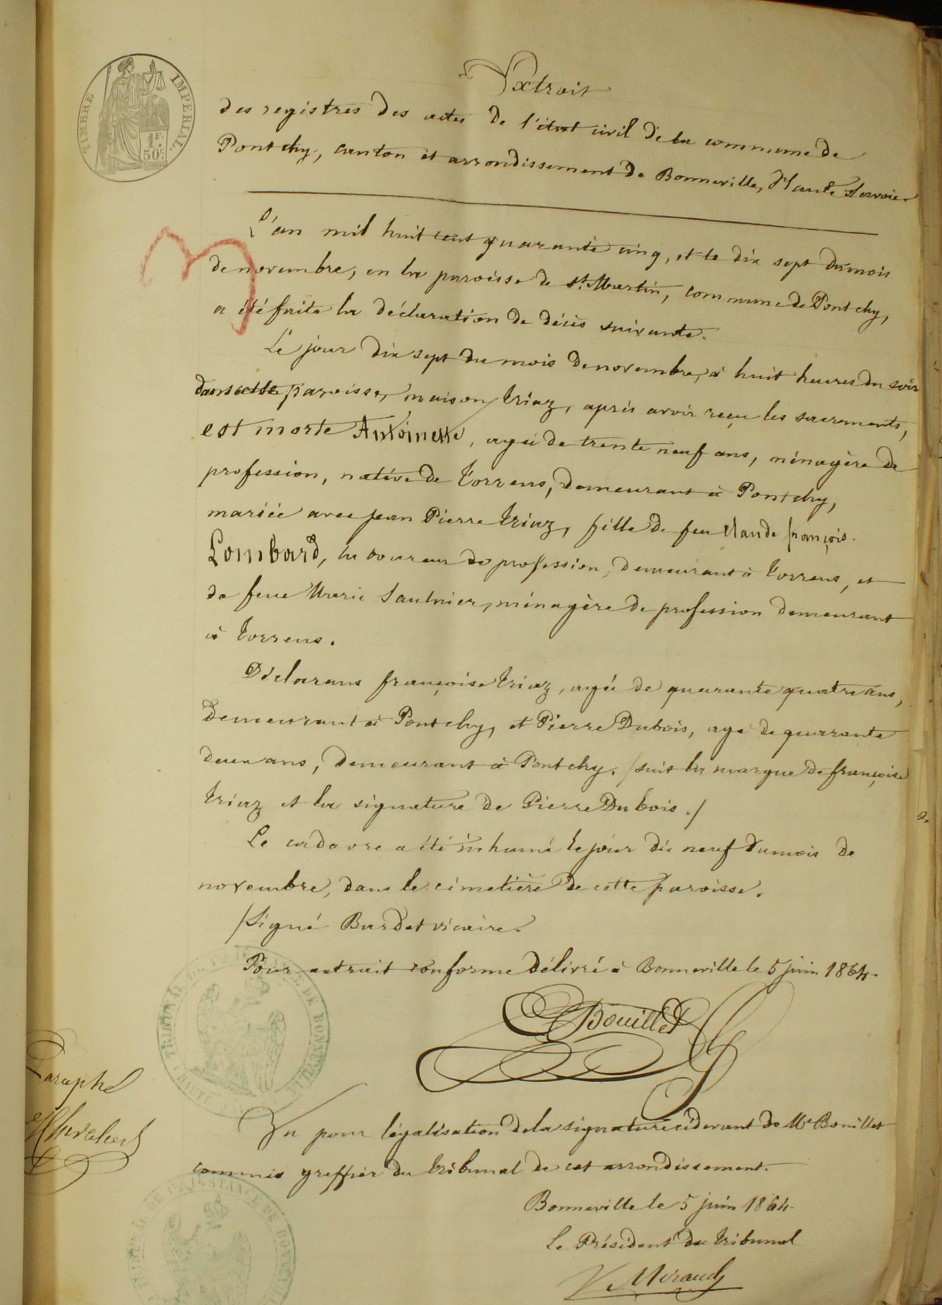 TIMBRE IMPERIAL
1F.
50c.
Extrait
des registres des actes de l'état civil de la commune de
Pontchy, canton et arrondissement de Bonneville, Haute Savoie.
L'an mil huit cent quarante cinq, et le dix sept du mois
de novembre, en la paroisse de St. Martin, commune de Pontchy,
a été faite la déclaration de décès suivante.
Le jour dix sept du mois de novembre, à huit heures du soir
dans cette paroisse, maison Triaz, après avoir reçu les sacrements,
est morte Antoinette, agée de trente neuf ans, ménagère de
profession, native de Torrens, demeurant à Pontchy,
mariée avec jean Pierre Triaz, fille de feu claude françois
Lombard, laboureur de profession, demeurant à Torrens, et
de feue Marie Saulnier, ménagère de profession demeurant
à Torrens.
Déclarans françoise Triaz, agée de quarante quatre ans,
demeurant à Pontchy, et Pierre Dubois, agé de quarante
deux ans, demeurant à Pontchy. /suit la marque de françoise
Triaz et la signature de Pierre Dubois./
Le cadavre a été inhumé le jour dix neuf du mois de
novembre, dans le cimetière de cette paroisse.
/Signé Bardet vicaire.
Pour extrait conforme délivré à Bonneville le 5 juin 1864.
Bouillet
Paraphé
Vu pour légalisation de la signature ci devant de Me Bouillet
commis greffier du tribunal de cet arrondissement.
Bonneville le 5 juin 1864.
Le Président du Tribunal
TRIBUNAL DE 1ERE INSTANCE DE BONNEVILLE
TRIBUNAL DE 1ERE INSTANCE DE BONNEVILLE